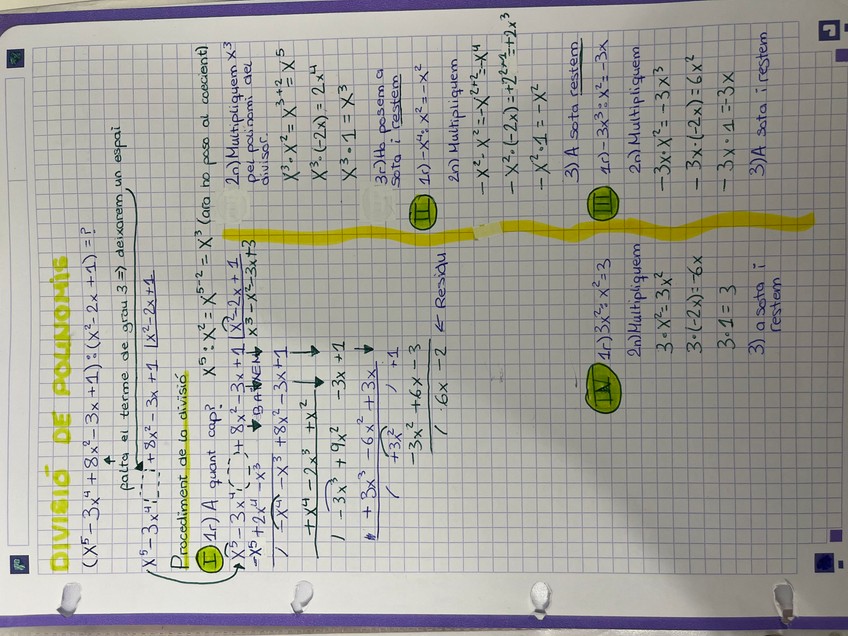 DIVISIÓ DE POLINOMIS
(x⁵ - 3x⁴ + 8x² - 3x + 1) : (x² - 2x + 1) = ?
falta el terme de grau 3 => deixarem un espai
x⁵ - 3x⁴ + 8x² - 3x + 1 | x² - 2x + 1
Procediment de la divisió
I 1r) A quant cap? x⁵ : x² = x⁵⁻² = x³ (ara ho poso al coecient)
x⁵ - 3x⁴ + 8x² - 3x + 1 | x² - 2x + 1
-x⁵ + 2x⁴ - x³ BAIXEM x³ - x² - 3x + 3
/ -x⁴ - x³ + 8x² - 3x + 1
+ x⁴ - 2x³ + x²
/ -3x³ + 9x² - 3x + 1
+ 3x³ - 6x² + 3x
/ + 3x² / + 1
-3x² + 6x - 3
/ 6x - 2 ← Residu
2n) Multipliquem x³
pel polinomi del
divisor.
x³ · x² = x³⁺² = x⁵
x³ · (-2x) = 2x⁴
x³ · 1 = x³
3r) Ho posem a
sota i restem
II 1r) -x⁴ : x² = -x²
2n) Multipliquem
-x² · x² = -x²⁺² = -x⁴
-x² · (-2x) = +2²⁺¹ = +2x³
-x² · 1 = -x²
3) A sota restem
III 1r) -3x³ : x² = -3x
2n) Multipliquem
-3x · x² = -3x³
-3x · (-2x) = 6x²
-3x · 1 = -3x
3) A sota i restem
IV 1r) 3x² : x² = 3
2n) Multipliquem
3 · x² = 3x²
3 · (-2x) = -6x
3 · 1 = 3
3) a sota i
restem